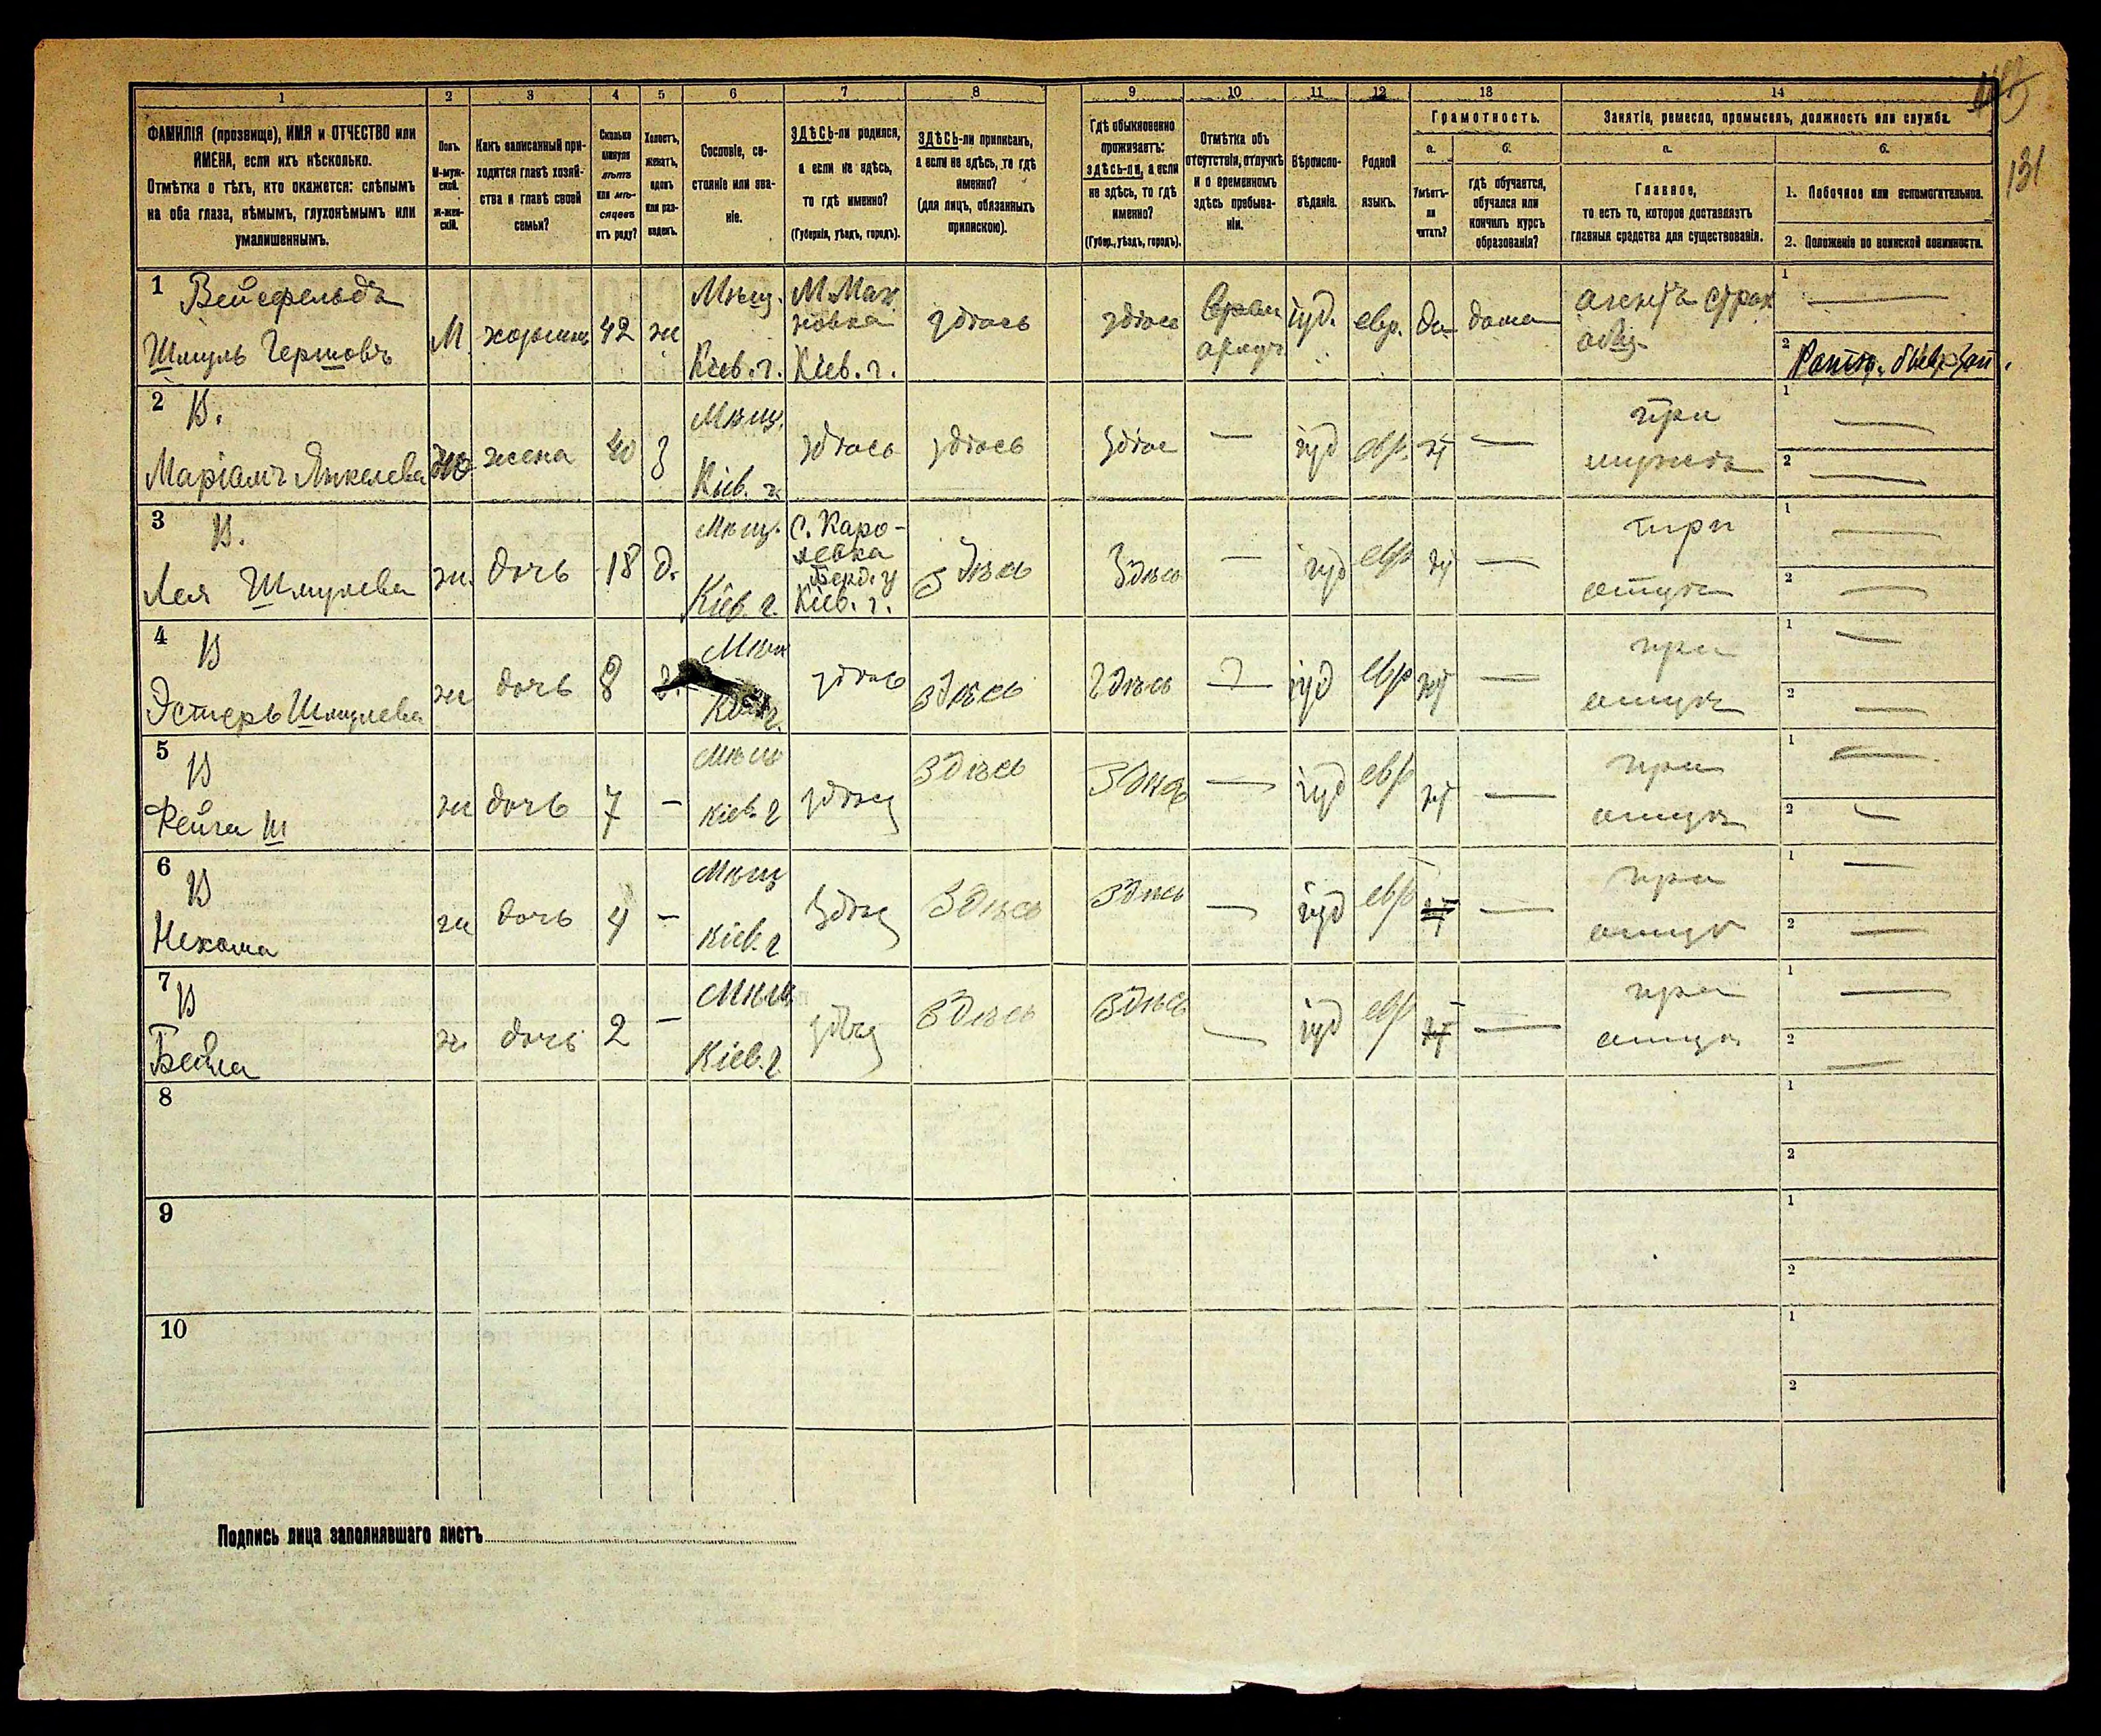 1 2 3 4 5 6 7 8 9 10 11 12 13 14
131
ФАМИЛІЯ (прозвище), ИМЯ и ОТЧЕСТВО или
ИМЕНА, если ихъ нѣсколько.
Отмѣтка о тѣхъ, кто окажется: слѣпымъ
на оба глаза, нѣмымъ, глухонѣмымъ или
умалишеннымъ.
Полъ.
М-муж-
ской.
ж-жен-
скій.
Какъ записанный при-
ходится главѣ хозяй-
ства и главѣ своей
семьи?
Сколько
минуло
лѣтъ
или мѣ-
сяцевъ
отъ роду?
Холостъ,
женатъ,
вдовъ
или раз-
веденъ.
Сословіе, со-
стояніе или зва-
ніе.
ЗДѢСЬ-ли родился,
а если не здѣсь,
то гдѣ именно?
(Губернія, уѣздъ, городъ).
ЗДѢСЬ-ли приписанъ,
а если не здѣсь, то гдѣ
именно?
(для лицъ, обязанныхъ
припискою).
Гдѣ обыкновенно
проживаетъ:
здѣсь-ли, а если
не здѣсь, то гдѣ
именно?
(Губер., уѣздъ, городъ).
Отмѣтка объ
отсутствіи, отлучкѣ
и о временномъ
здѣсь пребыва-
ніи.
Вѣроиспо-
вѣданіе.
Родной
языкъ.
Грамотность.
а.
Умѣетъ-
ли
читать?
б.
гдѣ обучается,
обучался или
кончилъ курсъ
образованія?
Занятіе, ремесло, промыселъ, должность или служба.
а.
Главное,
то есть то, которое доставляетъ
главныя средства для существованія.
б.
1. Побочное или вспомогательное.
2. Положеніе по воинской повинности.
1 Вейсфельдъ
Шмуль Гершовъ М хозяинъ 42 ж
Мѣщ. Кіев. г.
М Мах
новка
Кіев. г.
здѣсь здѣсь іуд. евр. да дома
агентъ страх
общ.
1
2
2 В.
Маріамъ Янкелева жена 40 з
Мѣщ. Кіев. г.
здѣсь здѣсь здѣс — іуд евр. нѣ —
при
мужѣ
1 —
2 —
3 В.
Лея Шмулева ж. дочь 18 д.
Мѣщ. Кіев. г.
С. Каро-
левка
Берд. у
Кіев. г.
Здѣсь Здѣсь — іуд евр нѣ —
при
отцѣ
1 —
2 —
4 В
Эстеръ Шмулева ж дочь 8
здѣсь здѣсь здѣсь — іуд евр нѣ —
при
отцѣ
1 —
2 —
5 В
Фейга Ш ж дочь 7 —
Мѣщ Кіев. г
здѣсь здѣсь здѣсь — іуд евр нѣ —
при
отцѣ
1 —
2 —
6 В
Нехама ж дочь 4 —
Мѣщ Кіев. г
здѣсь здѣсь здѣсь — іуд евр —
при
отцѣ
1 —
2 —
7 В
Бейла ж. дочь 2 —
Мѣщ Кіев. г
здѣсь здѣсь здѣсь — іуд евр —
при
отцѣ
1 —
2 —
8
1
2
9
1
2
10
1
2
Подпись лица заполнявшаго листъ